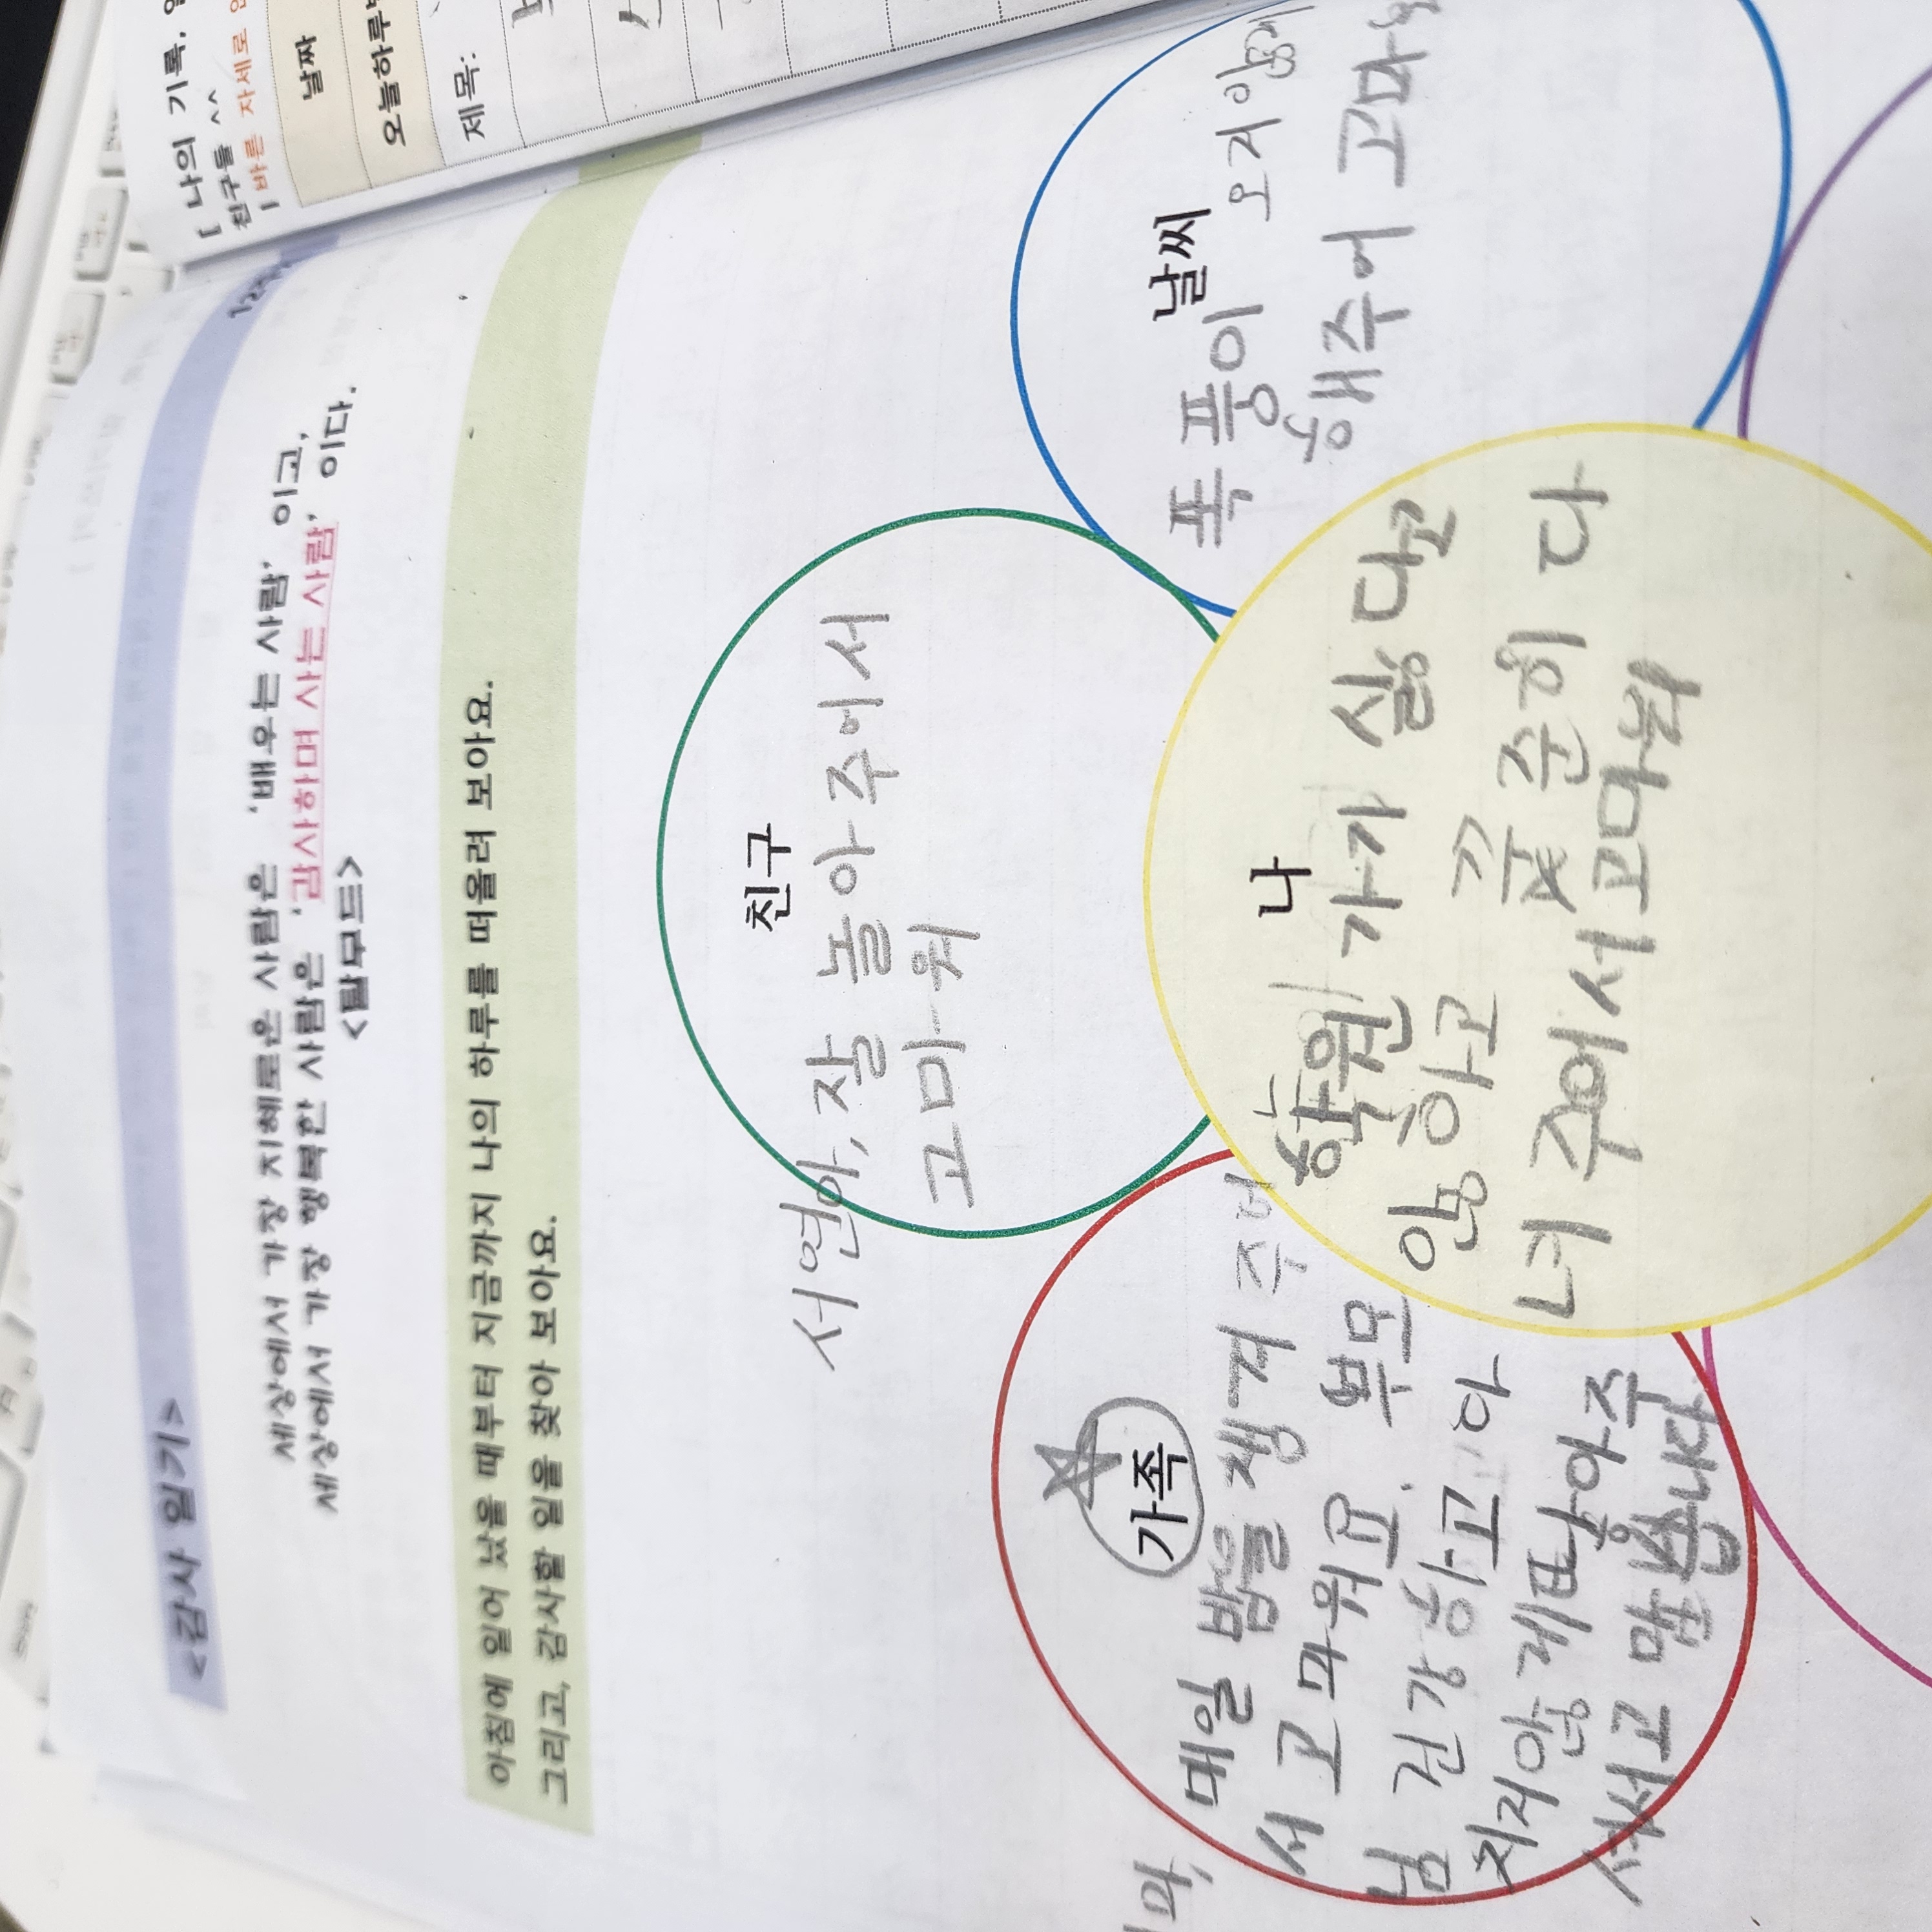 <감사 일기>
세상에서 가장 지혜로운 사람은 '배우는 사람' 이고,
세상에서 가장 행복한 사람은 '감사하며 사는 사람' 이다.
<탈무드>
아침에 일어 났을 때부터 지금까지 나의 하루를 떠올려 보아요.
그리고, 감사할 일을 찾아 보아요.
친구
서연아, 잘 놀아주에서
고마워
가족
매일 밥을 챙겨 주어
서 고마워요. 부모
님 건강하고 아
서고
나
학원 가기 싫다고
안하고 꾸준히 다
녀 주어서 고마워
날씨
폭풍이 오지 않게
해주어
[ 나의 기록,
친구들 ^^
바른 자세로
날짜
오늘하루
제목: